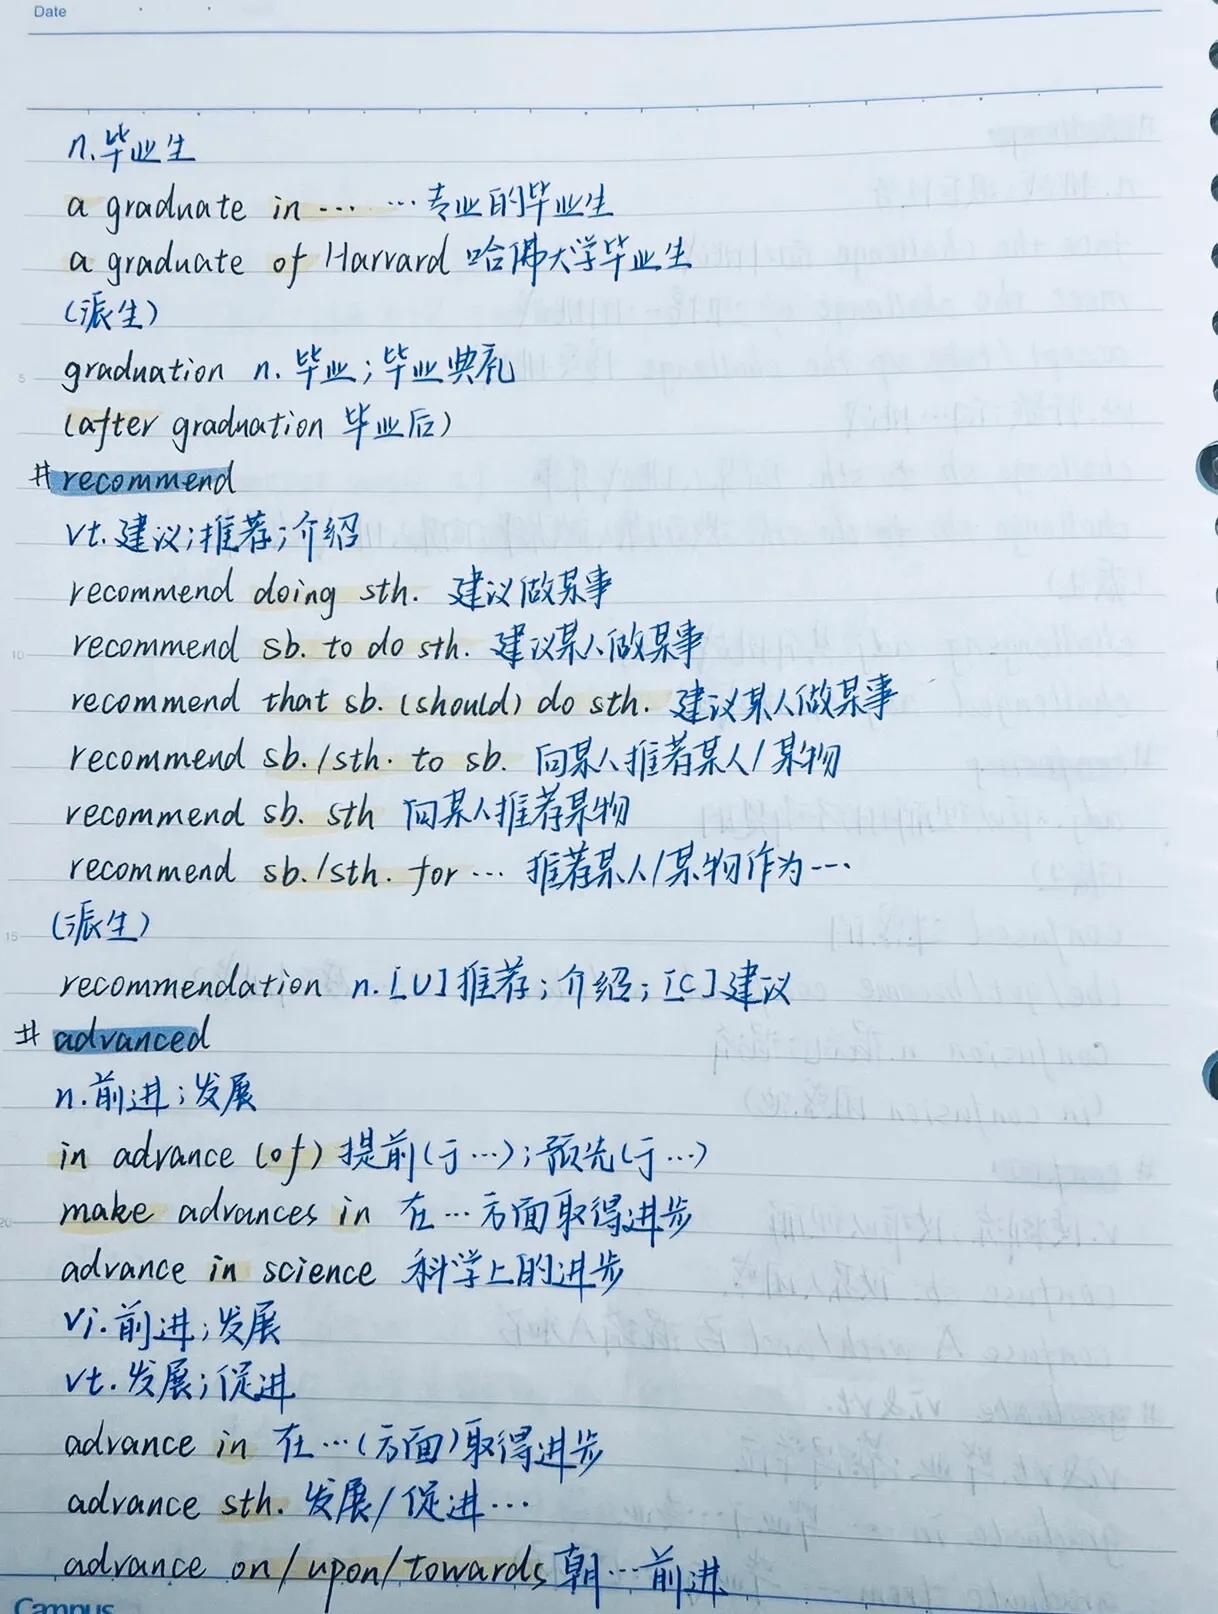 Date
n.毕业生
a graduate in ··· ···专业的毕业生
a graduate of Harvard 哈佛大学毕业生
(派生)
5
graduation n. 毕业;毕业典礼
(after graduation 毕业后)
# recommend
vt.建议;推荐;介绍
recommend doing sth. 建议做某事
10
recommend sb. to do sth. 建议某人做某事
recommend that sb. (should) do sth. 建议某人做某事
recommend sb./sth. to sb. 向某人推荐某人/某物
recommend sb. sth 向某人推荐某物
recommend sb./sth. for ··· 推荐某人/某物作为···
15
(派生)
recommendation n.[U]推荐;介绍;[C]建议
# advanced
n.前进;发展
in advance (of) 提前(于···);预先(于···)
20
make advances in 在···方面取得进步
advance in science 科学上的进步
vi.前进;发展
vt.发展;促进
advance in 在···(方面)取得进步
advance sth. 发展/促进···
advance on/upon/towards 朝···前进
Campus